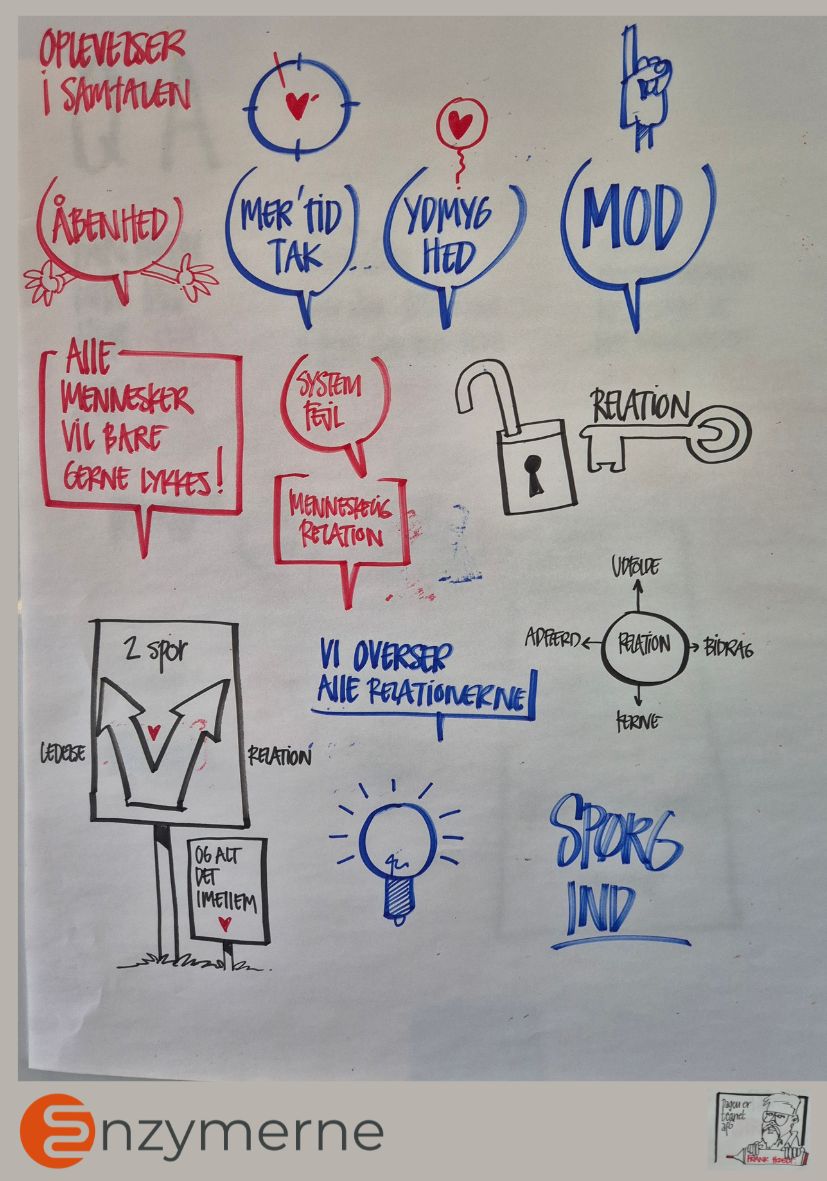 OPLEVELSER
I SAMTALEN
ÅBENHED
MER' TID
TAK
YDMYG
HED
MOD
ALLE
MENNESKER
VIL BARE
GERNE LYKKES!
SYSTEM
FEJL
MENNESKELIG
RELATION
RELATION
UDFOLDE
ADFÆRD
RELATION
BIDRAG
KERNE
2 spor
LEDELSE
RELATION
OG ALT
DET
IMELLEM
VI OVERSER
ALLE RELATIONERNE
SPØRG
IND
enzymerne
Dagen er
tegnet
af:
FRANK